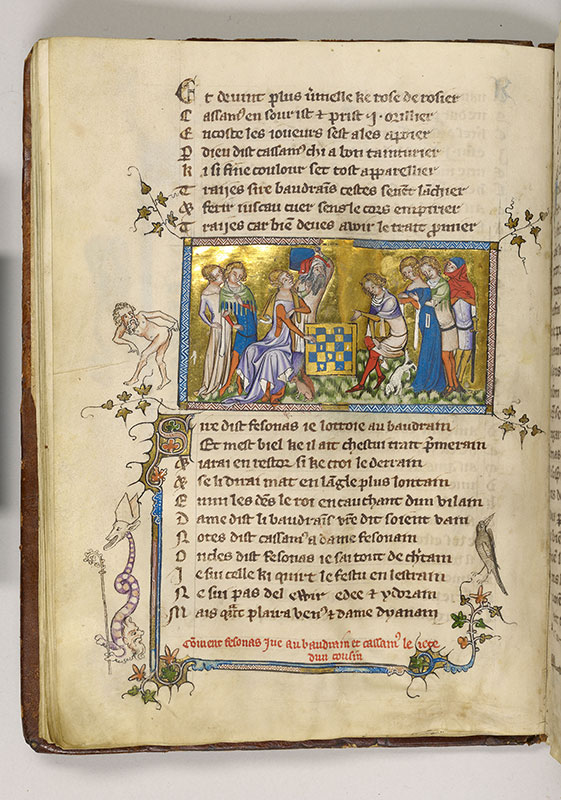 Et devint plus v̄melle ke rose de rosier
Cassam᷒ en sourist & prist .j. orillier
Encoste les ioueurs sest ales apoier
P dieu dist cassam᷒ chi a bon tainturier
Ki si fine coulour set tost apparellier
Traijes sire baudrains cestes
& ferir sens le cors empirier
Traijes car biē deves avoir le trait p̄mier
Sire dist fesonas ie lottroie au baudrain
Et mest biel ke il ait chestui trait p̄merain
& iarai en restor si ke croi le derrain
& se li dirai mat en lāgle plus lontain
Enmi les dēs le roi en cauchant dun vilain
Dame dist li baudrains vr̄e dit soient vain
Notes dist cassam᷒ a dame fesonain
Oncles dist fesonas ie sai tout de ch̄tain
Je sui celle ki quirt le festu en lestrain
Ne sui pas del edee & ydorain
Mais q̄nt plaira ven᷒ & dame dyanain
Cōment fesonas jue au baudrain et cassam᷒ le iete
dun cousin